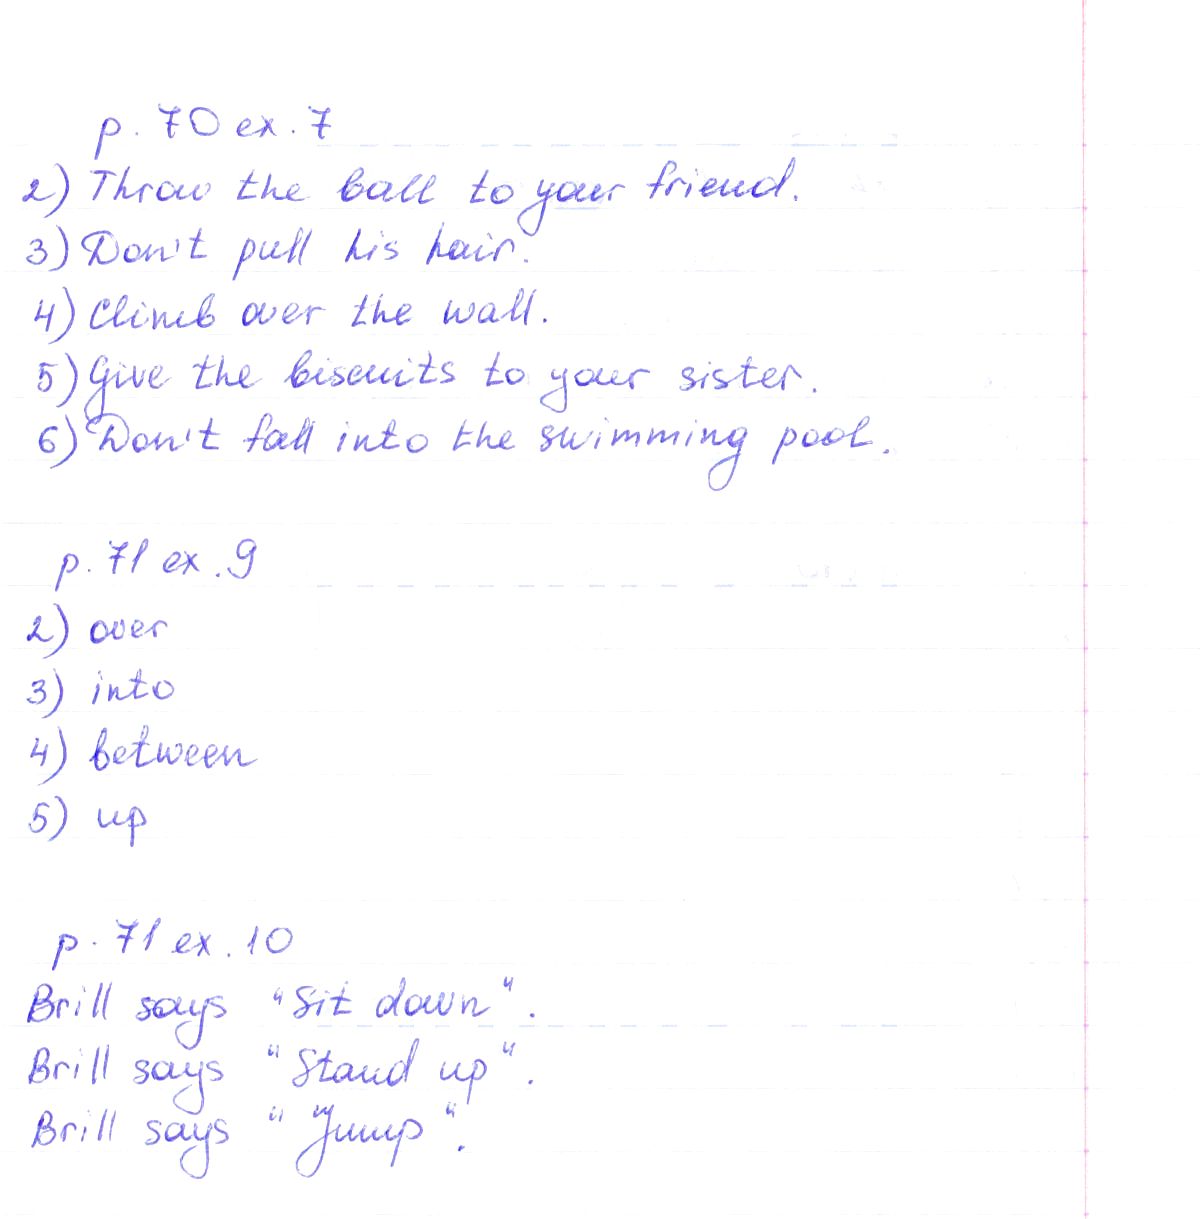 p. 70 ex. 7
2) Throw the ball to your friend.
3) Don't pull his hair.
4) Climb over the wall.
5) Give the biscuits to your sister.
6) Don't fall into the swimming pool.
p. 71 ex. 9
2) over
3) into
4) between
5) up
p. 71 ex. 10
Brill says "Sit down".
Brill says "Stand up".
Brill says "Jump".